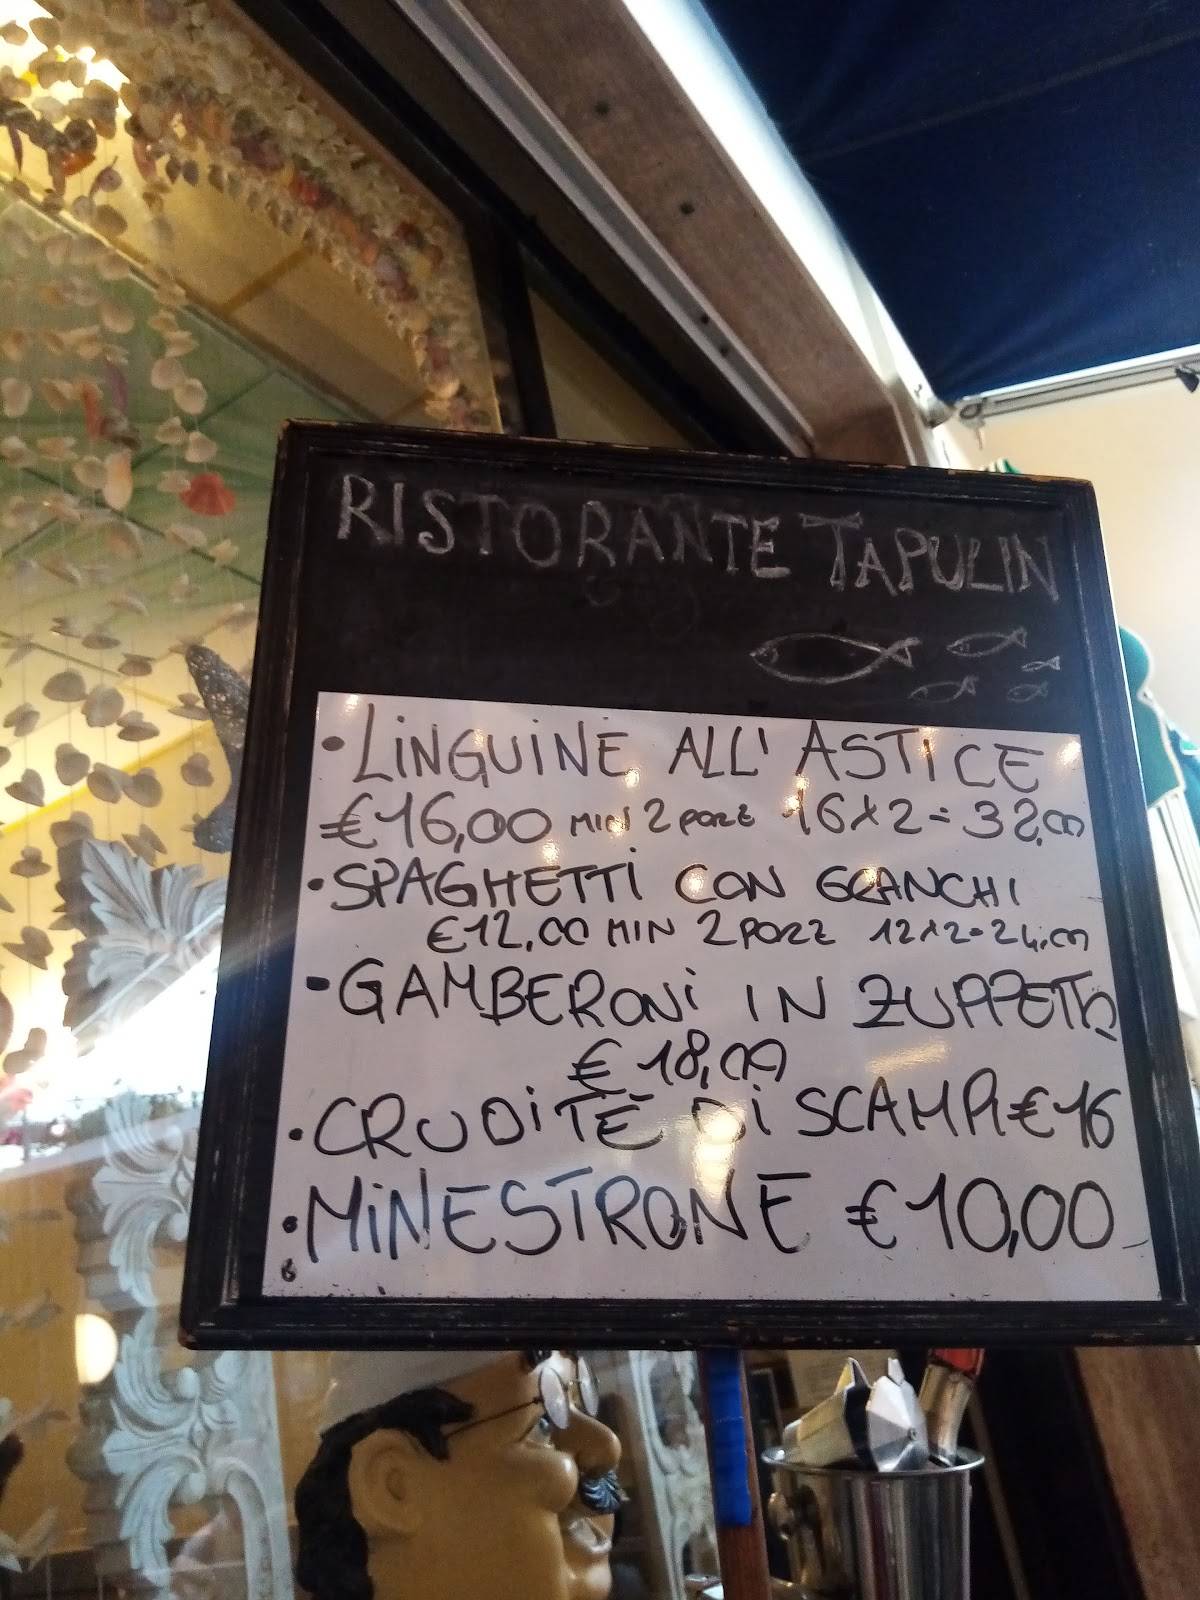 RISTORANTE TAPULIN
• LINGUINE ALL' ASTICE
€16,00 MIN 2 PORZ 16x2=32,00
• SPAGHETTI CON GRANCHI
€12,00 MIN 2 PORZ 12x2=24,00
• GAMBERONI IN ZUPPETTA
€ 18,00
• CRUDITÈ DI SCAMPI €16
• MINESTRONE €10,00